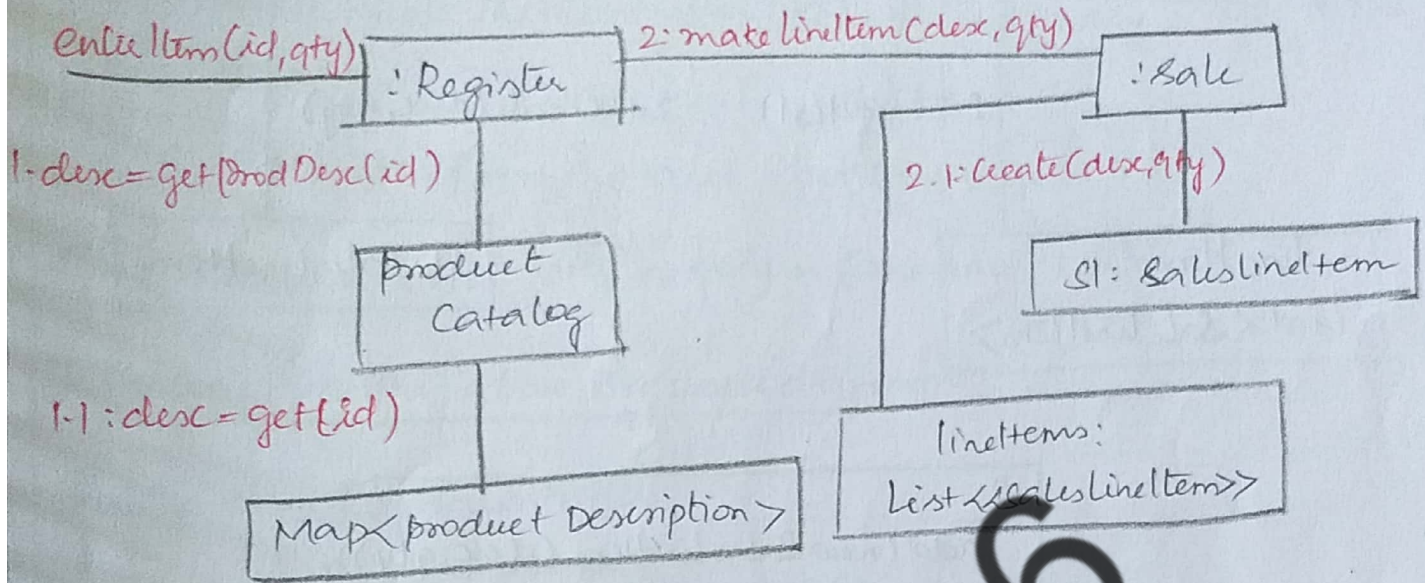 enter Item (id, qty)
2: make lineItem (desc, qty)
: Register
: Sale
1- desc = get Prod Desc (id)
2.1: Create (desc, qty)
Product
Catalog
Sl: SaleslineItem
1.1 : desc = get (id)
lineItems:
List <<salesLineItem>>
Map < product Description >